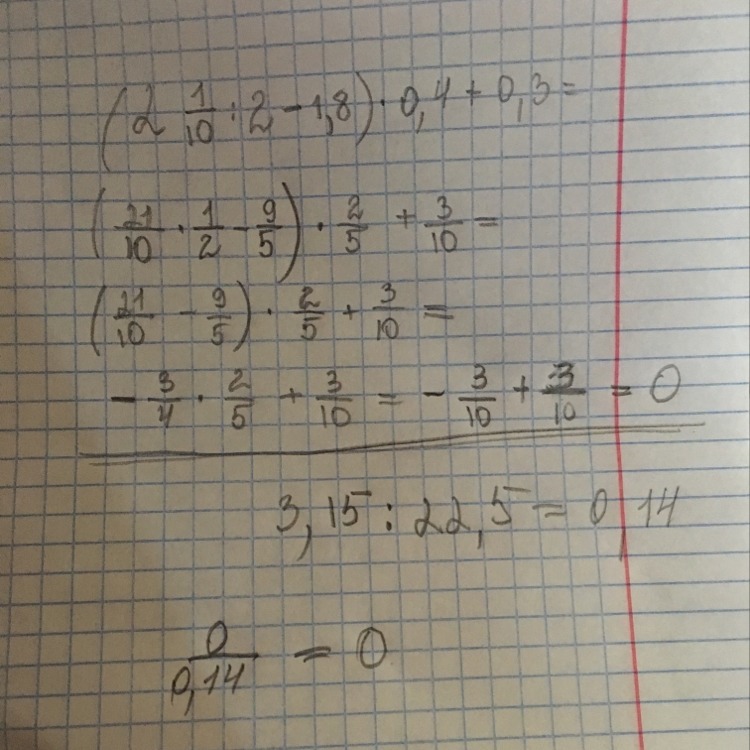 (2 1/10 : 2 - 1,8) · 0,4 + 0,3 =
(21/10 · 1/2 - 9/5) · 2/5 + 3/10 =
(21/10 - 9/5) · 2/5 + 3/10 =
- 3/4 · 2/5 + 3/10 = - 3/10 + 3/10 = 0
3,15 : 22,5 = 0,14
0/0,14 = 0